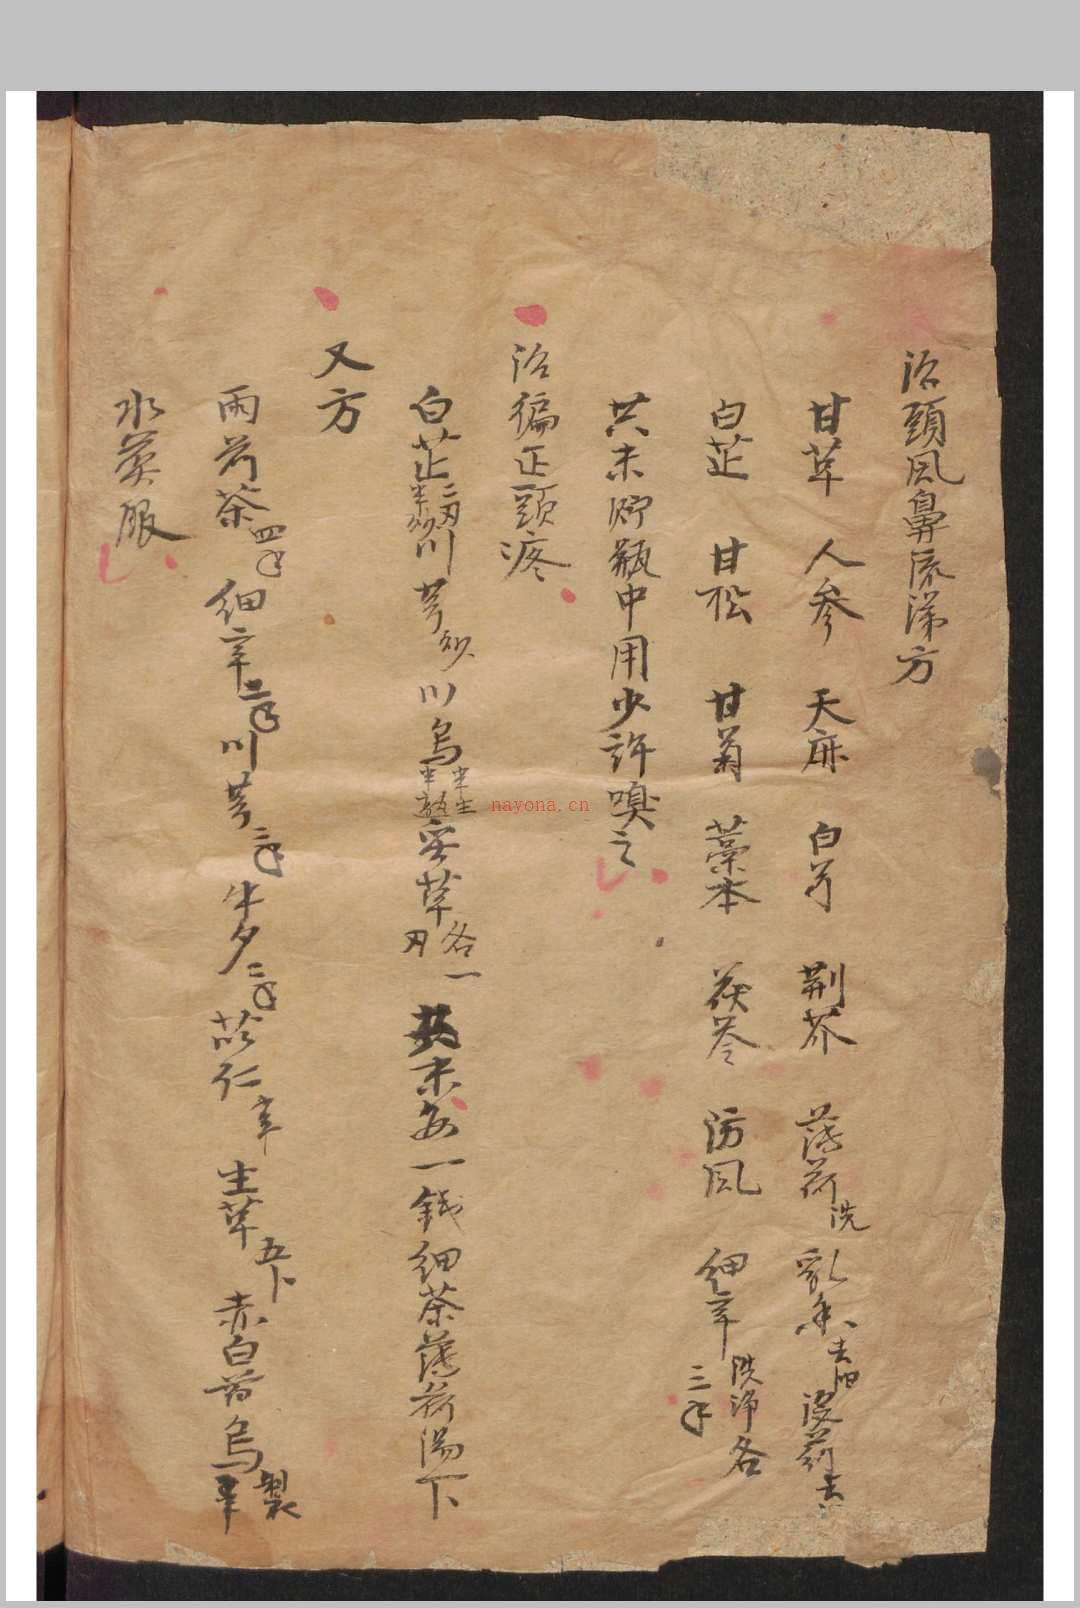 治頭風鼻流涕方
甘草 人參 天麻 白芍 荆芥 薄荷洗 乳香去油 沒药去
白芷 甘松 甘菊 藁本 茯苓 防風 細辛洗净各三
共末貯瓶中用少許嗅之
治徧正頭疼
白芷二 半炒 川芎炒 川烏半生半熟 草各一 共末 一錢細茶薄荷湯下
又方
雨前茶四 細辛 川芎二 牛夕二 仁 生草五卜 赤白芍 烏 製
水煎服
nayona.cn